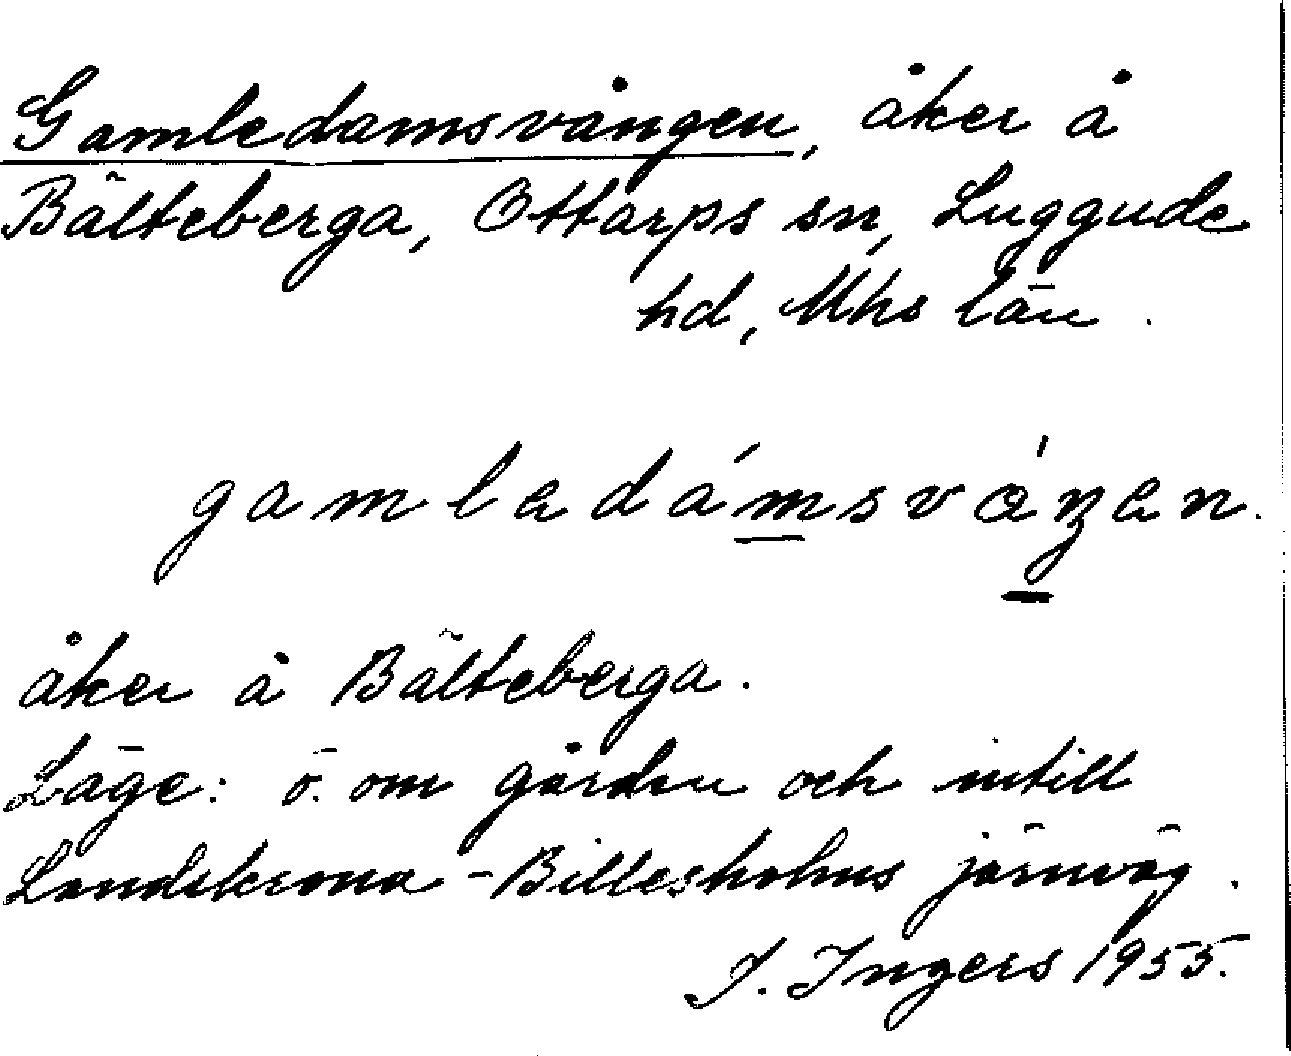 Gamledamsvången, åker å
Bälteberga, Ottarps sn, Luggude
hd, Mhs län.
gamladámsvåŋan.
åker å Bälteberga.
Läge: ö. om gården och intill
Landskrona-Billesholms järnväg.
I. Ingers 1955.